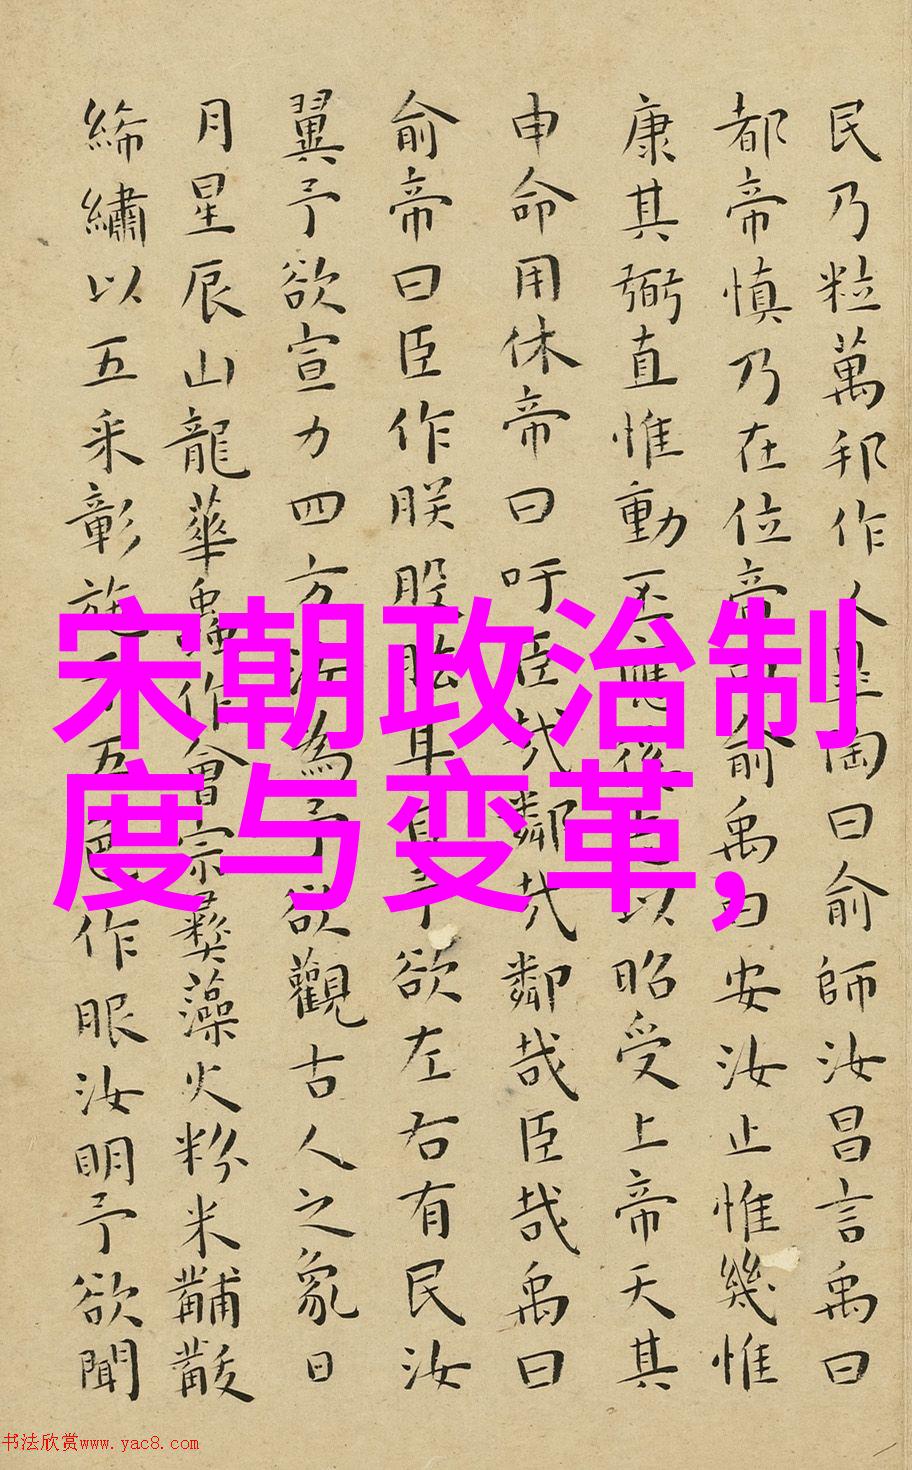 民乃粒萬邦作乂皋陶曰俞師汝昌言禹曰
都帝慎乃在位帝曰俞禹曰安汝止惟幾惟
康其弼直惟動丕應徯志以昭受上帝天其
申命用休帝曰吁臣哉鄰哉鄰哉臣哉禹曰
俞帝曰臣作朕股肱耳目予欲左右有民汝
翼予欲宣力四方汝為予欲觀古人之象日
月星辰山龍華蟲作會宗彝藻火粉米黼黻
絺繡以五采彰施于五色作服汝明予欲聞
宋朝政治制
度与变革,
书法欣赏www.yac8.com